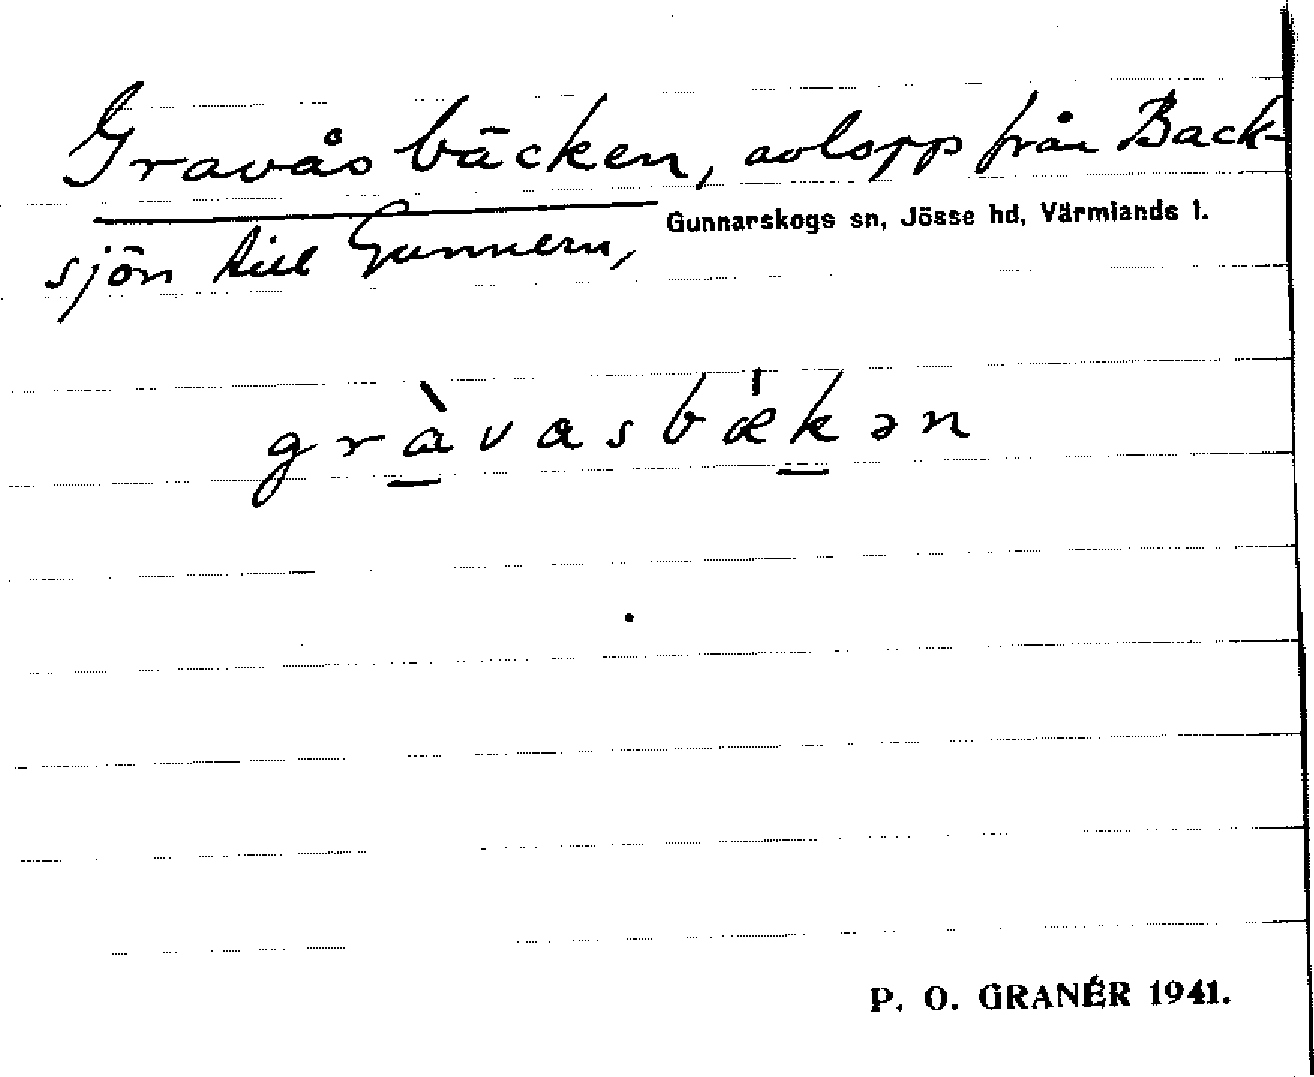 Gravåsbäcken, avlopp från Back-
Gunnarskogs sn, Jösse hd, Värmlands l.
sjön till Gunnern,
gràvasbǽkən
P. O. GRANÉR 1941.